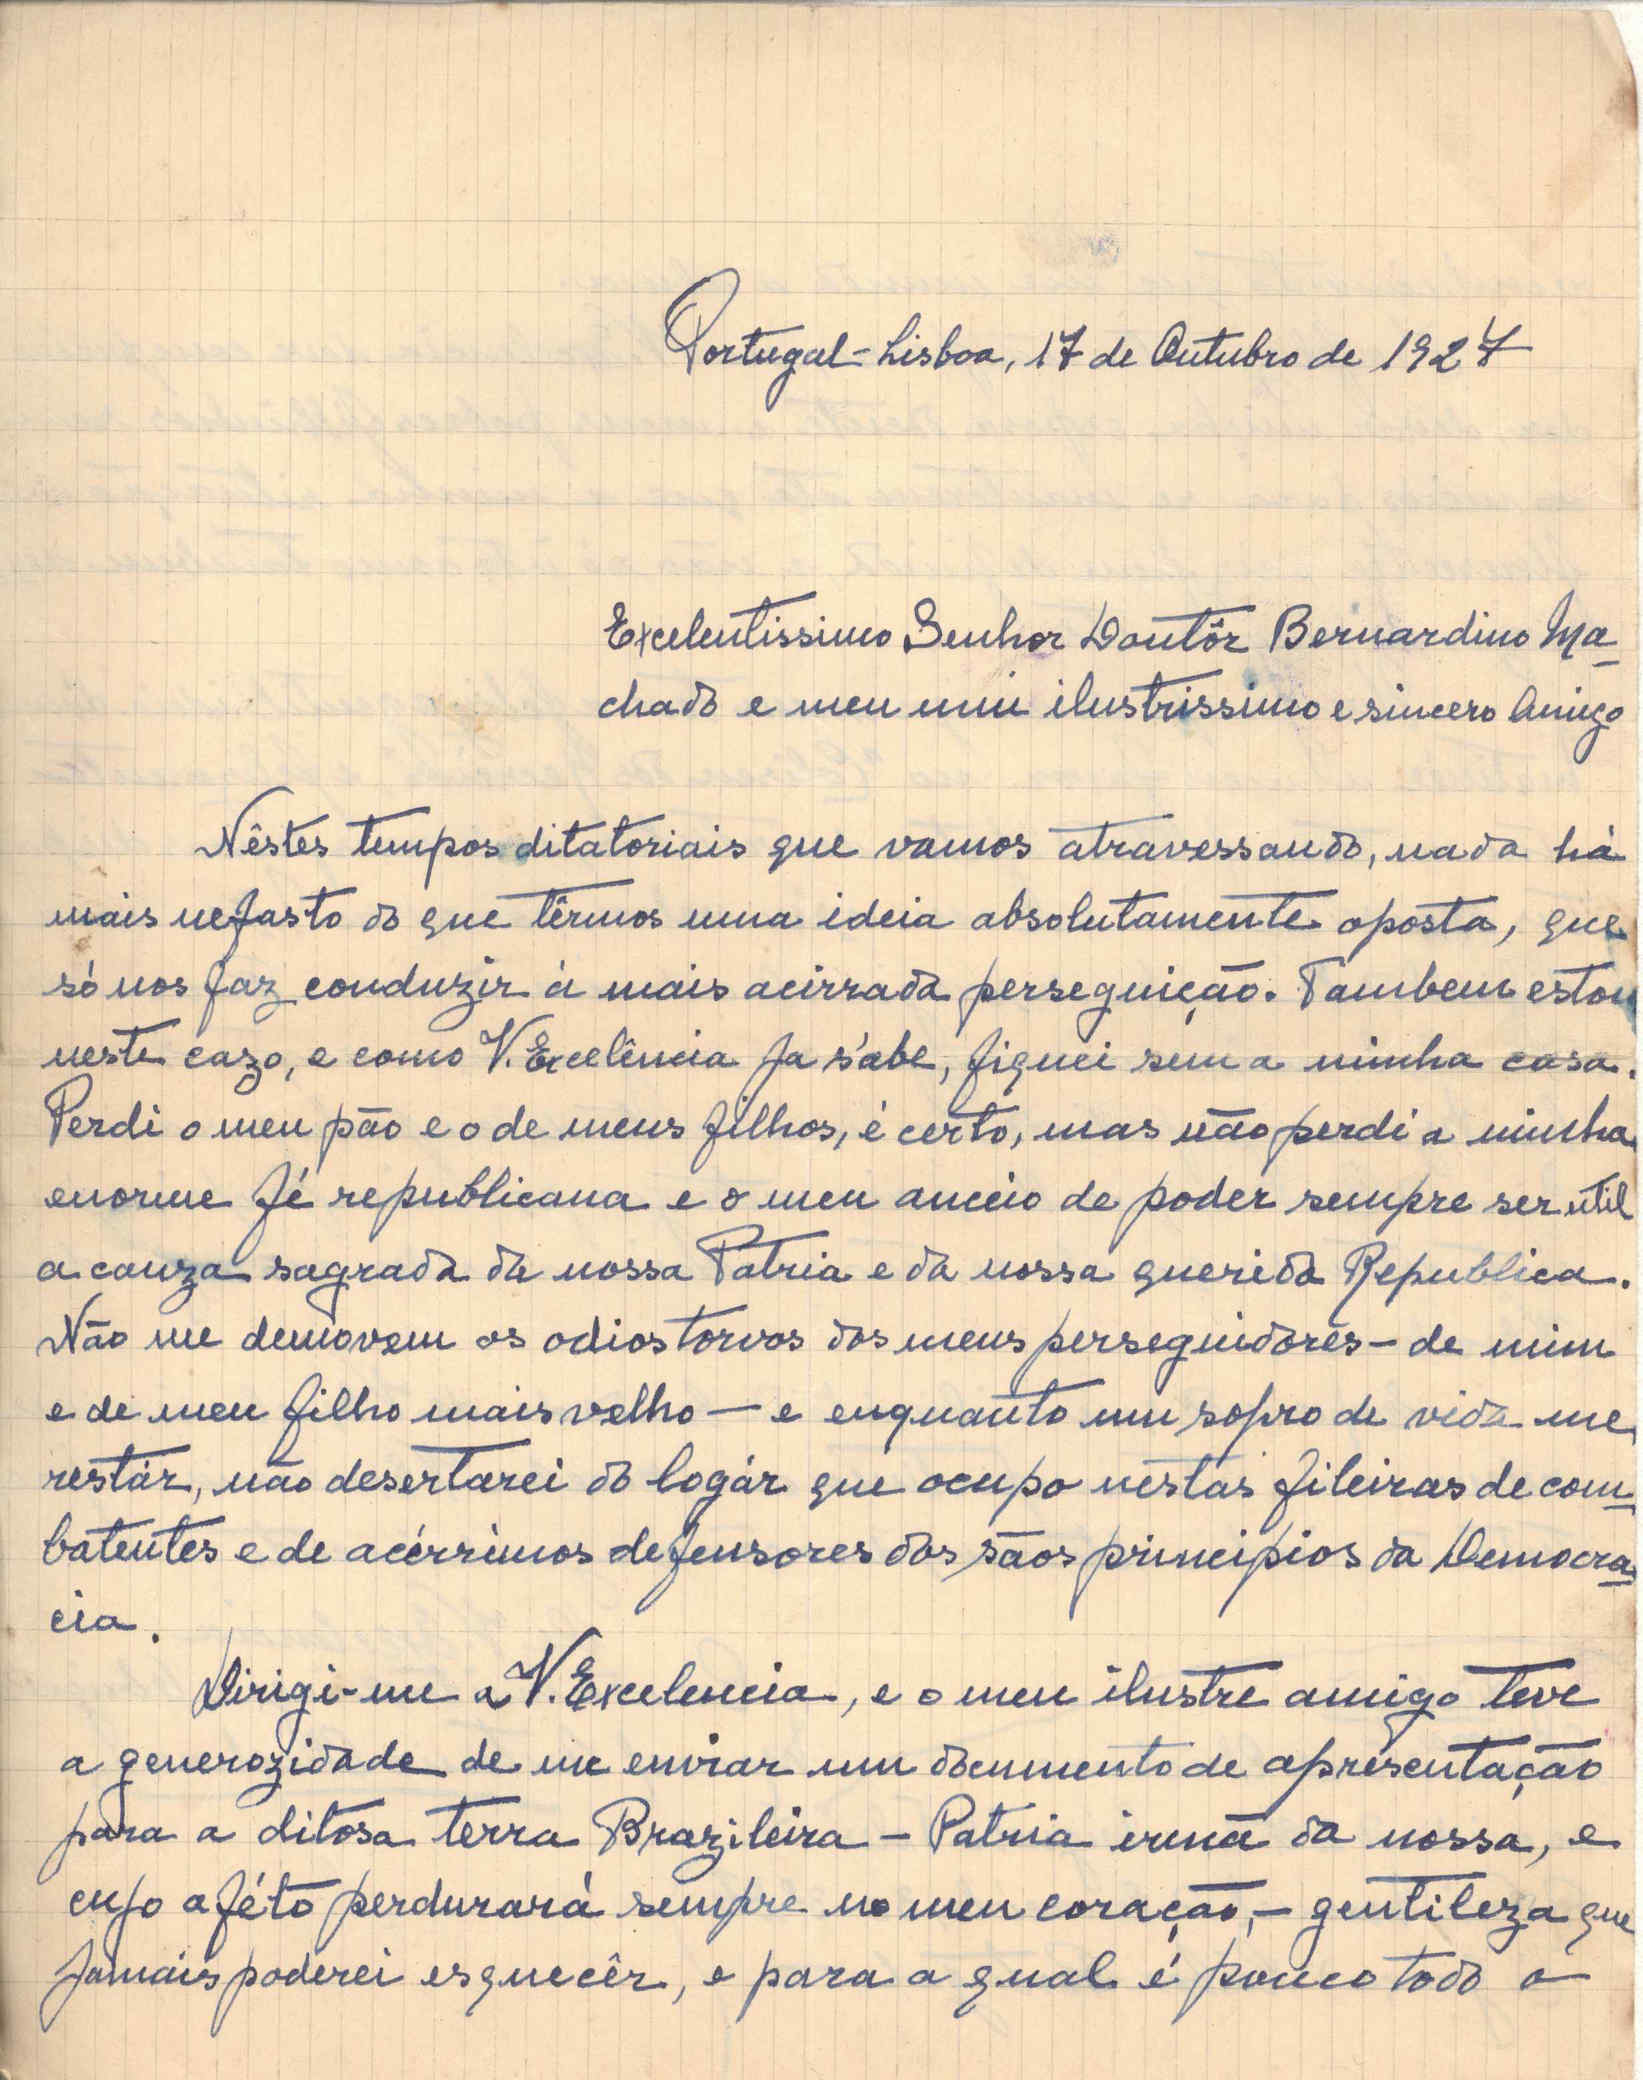 Portugal-Lisboa, 17 de Outubro de 1927
Excelentissimo Senhor Doutôr Bernardino Ma-
chado e meu mui ilustrissimo e sincero Amigo
Nêstes tempos ditatoriais que vamos atravessando, nada há
mais nefasto do que têrmos uma ideia absolutamente oposta, que
só nos faz conduzir á mais acirrada perseguição. Tambem estou
neste cazo, e como V. Excelência ja sabe, fiquei sem a minha casa.
Perdi o meu pão e o de meus filhos, é certo, mas não perdi a minha
enorme fé republicana e o meu anceio de poder sempre ser util
a cauza sagrada da nossa Patria e da nossa querida Republica.
Não me demovem os odios torvos dos meus perseguidores - de mim
e de meu filho mais velho — e enquanto um sopro de vida me
restár, não desertarei do logár que ocupo néstas fileiras de com-
batentes e de acérrimos defensores dos sãos principios da Democra-
cia.
Dirigi-me a V. Excelencia, e o meu ilustre amigo teve
a generozidade de me enviar um documento de apresentação
para a ditosa terra Brazileira - Patria irmã da nossa, e
cujo aféto perdurará sempre no meu coração, - gentileza que
jamais poderei esquecêr, e para a qual é pouco todo o